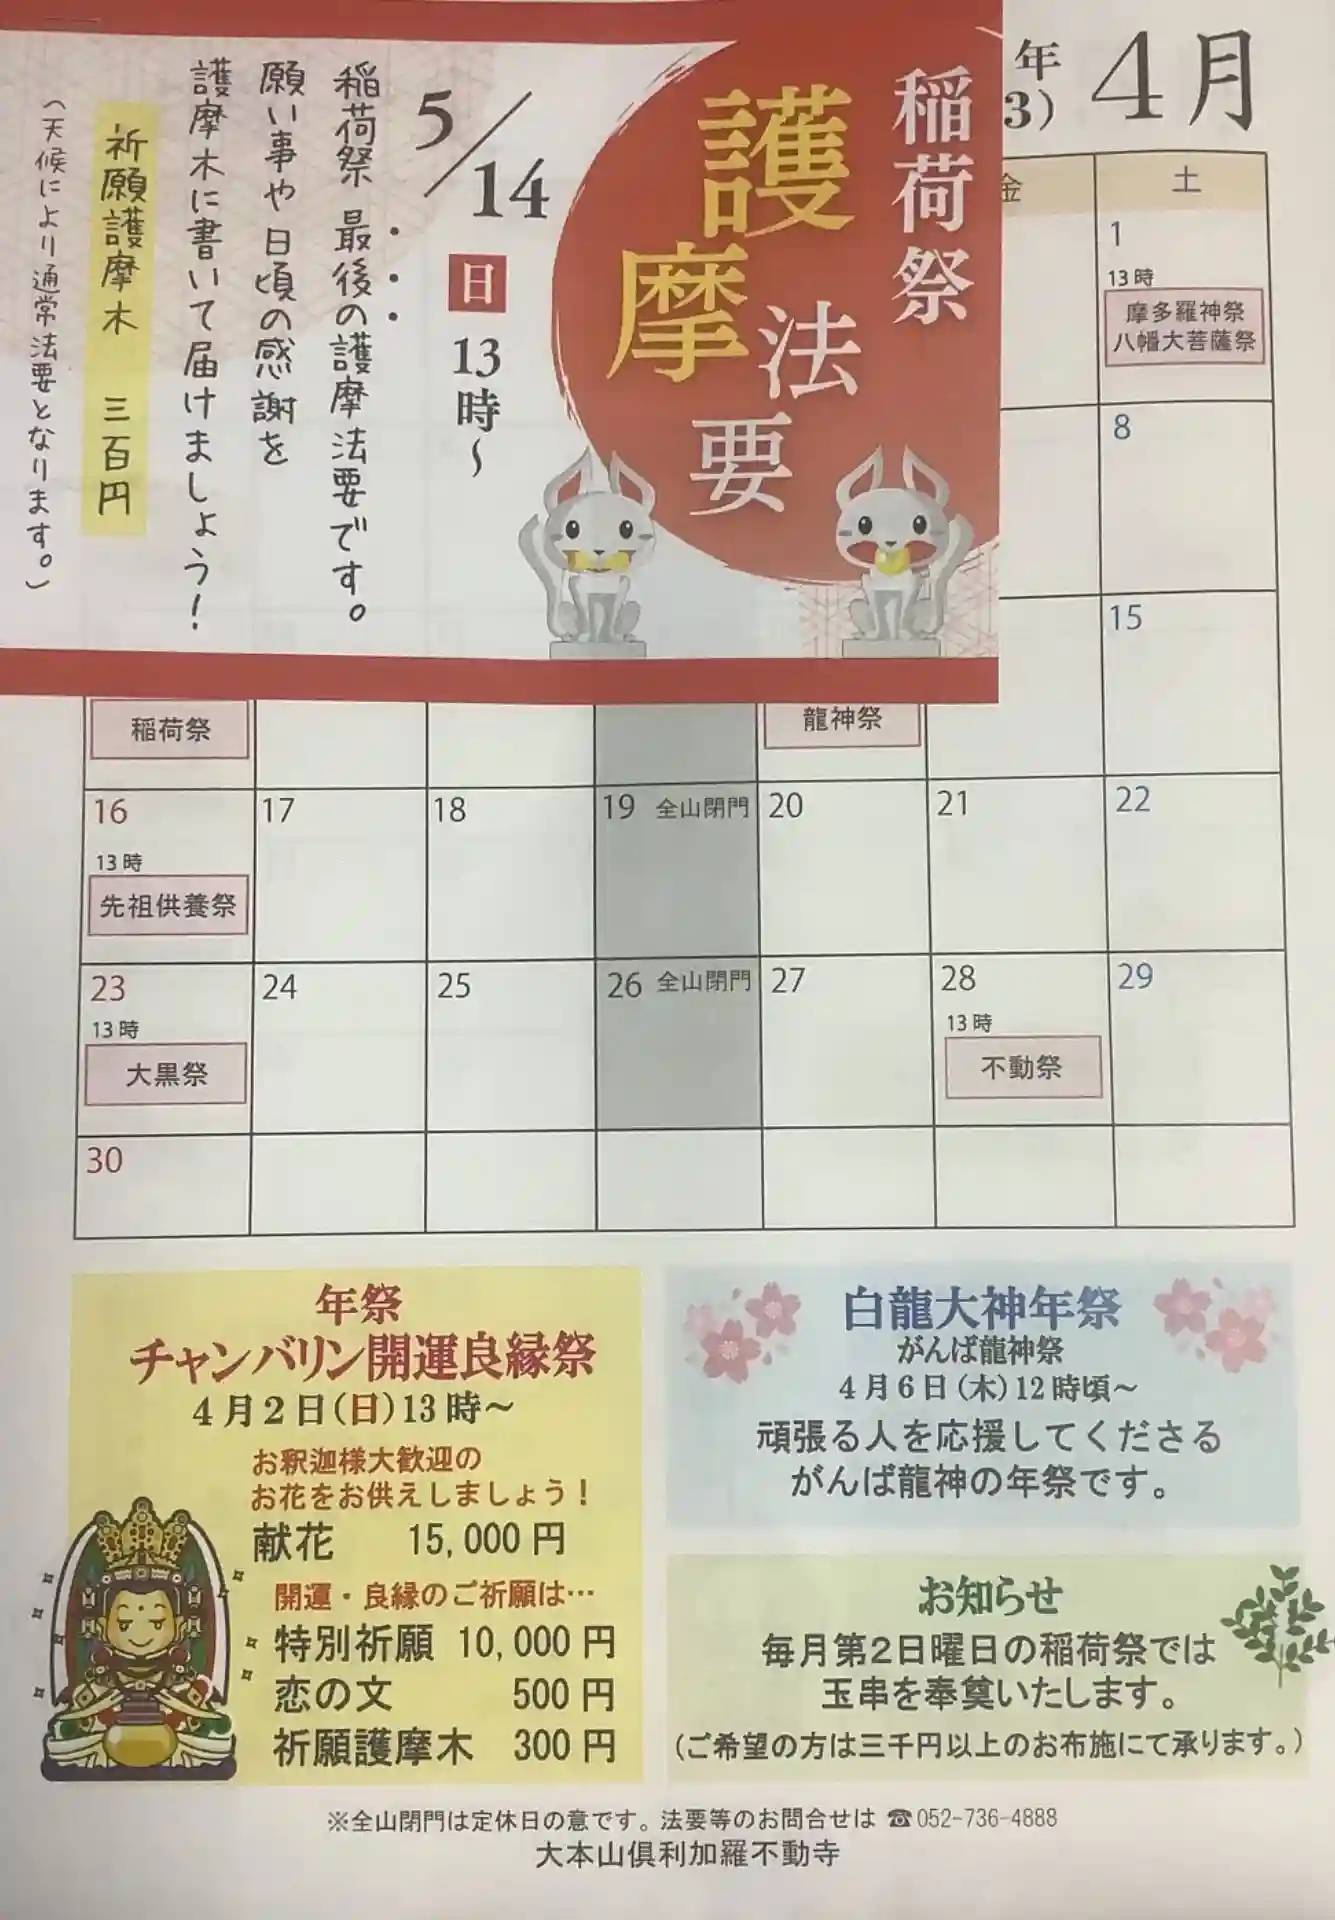 年
3)
4月
稲荷祭
護摩法要
5/14
日
13時～
稲荷祭 最後の護摩法要です。
願い事や日頃の感謝を
護摩木に書いて届けましょう！
祈願護摩木 三百円
（天候により通常法要となります。）
金 土
1
13時
摩多羅神祭
八幡大菩薩祭
8
15
稲荷祭
龍神祭
16 17 18 19 全山閉門 20 21 22
13時
先祖供養祭
23 24 25 26 全山閉門 27 28 29
13時
大黒祭
13時
不動祭
30
年祭
チャンバリン開運良縁祭
4月2日(日)13時～
お釈迦様大歓迎の
お花をお供えしましょう！
献花 15,000円
開運・良縁のご祈願は…
特別祈願 10,000円
恋の文 500円
祈願護摩木 300円
白龍大神年祭
がんば龍神祭
4月6日(木)12時頃～
頑張る人を応援してくださる
がんば龍神の年祭です。
お知らせ
毎月第2日曜日の稲荷祭では
玉串を奉奠いたします。
(ご希望の方は三千円以上のお布施にて承ります。)
※全山閉門は定休日の意です。法要等のお問合せは ☎052-736-4888
大本山倶利加羅不動寺